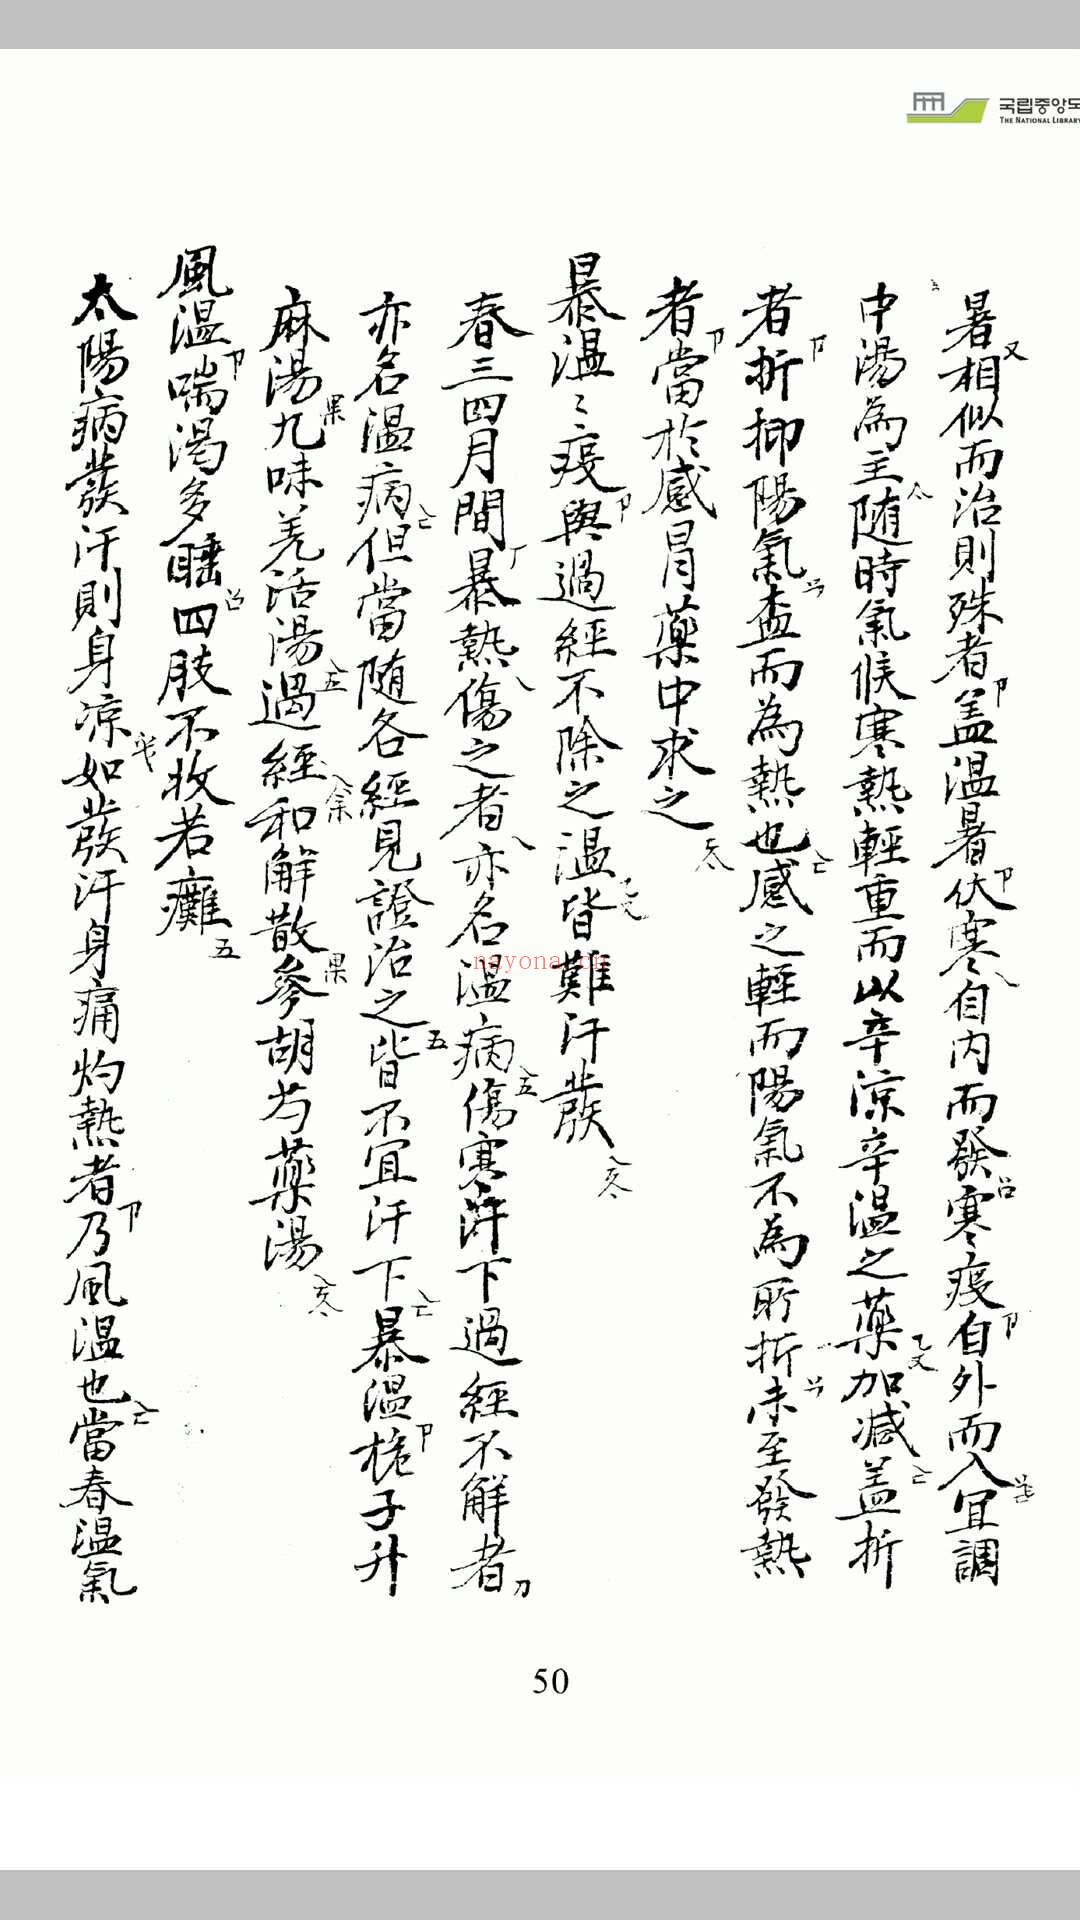 국립중앙도
THE NATIONAL LIBRARY
暑相似而治則殊者盖温暑伏寒自内而發寒疫自外而入宜調
中湯為主随時氣候寒熱輕重而以辛凉辛温之藥加减盖折
者折抑陽氣盍而為熱也感之輕而陽氣不為所折未至發熱
者當於感冒藥中求之
暴温〻疫與過經不除之温皆難汗發
春三四月間暴熱傷之者亦名温病傷寒汗下過經不解者
亦名温病但當随各經見證治之皆不宜汗下暴温梔子升
麻湯九味羌活湯過經和解散參胡芍藥湯
風温喘渴多睡四肢不收若癱
太陽病發汗則身凉如發汗身痛灼熱者乃風温也當春温氣
nayona.cn
50